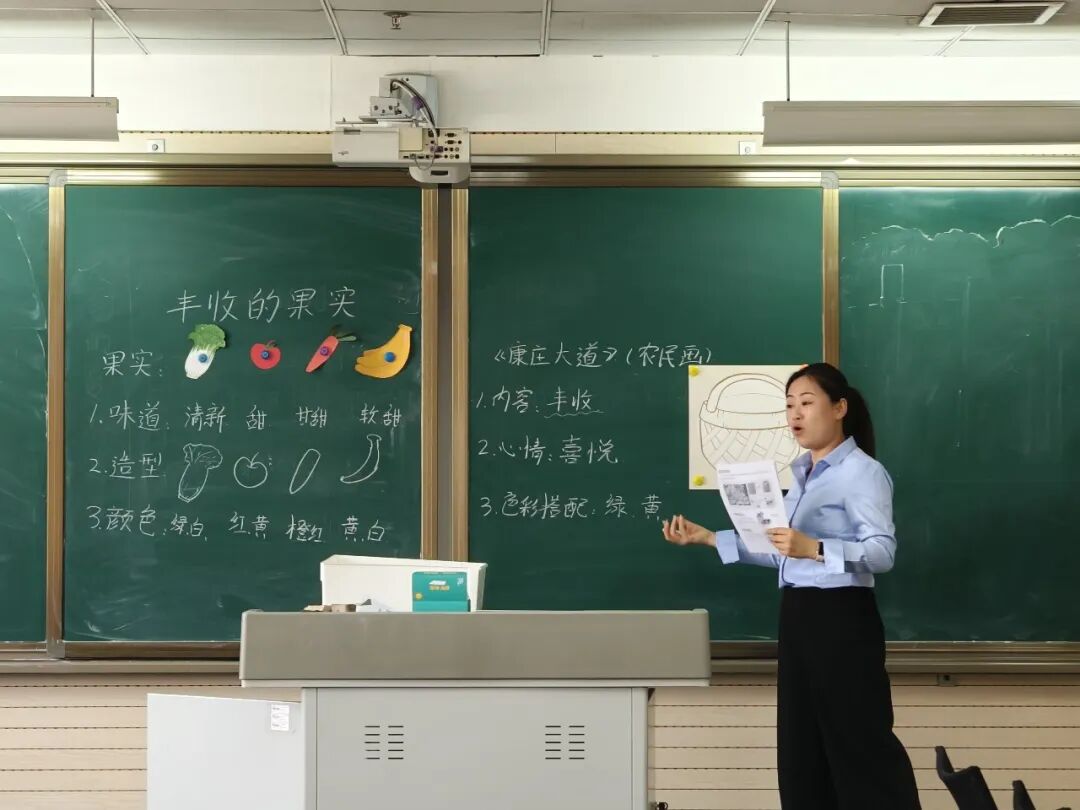 丰收的果实
果实:
1.味道:清新 甜 甘甜 软甜
2.造型
3.颜色:绿白 红黄 橙红 黄白
《康庄大道》(农民画)
1.内容:丰收
2.心情:喜悦
3.色彩搭配:绿 黄